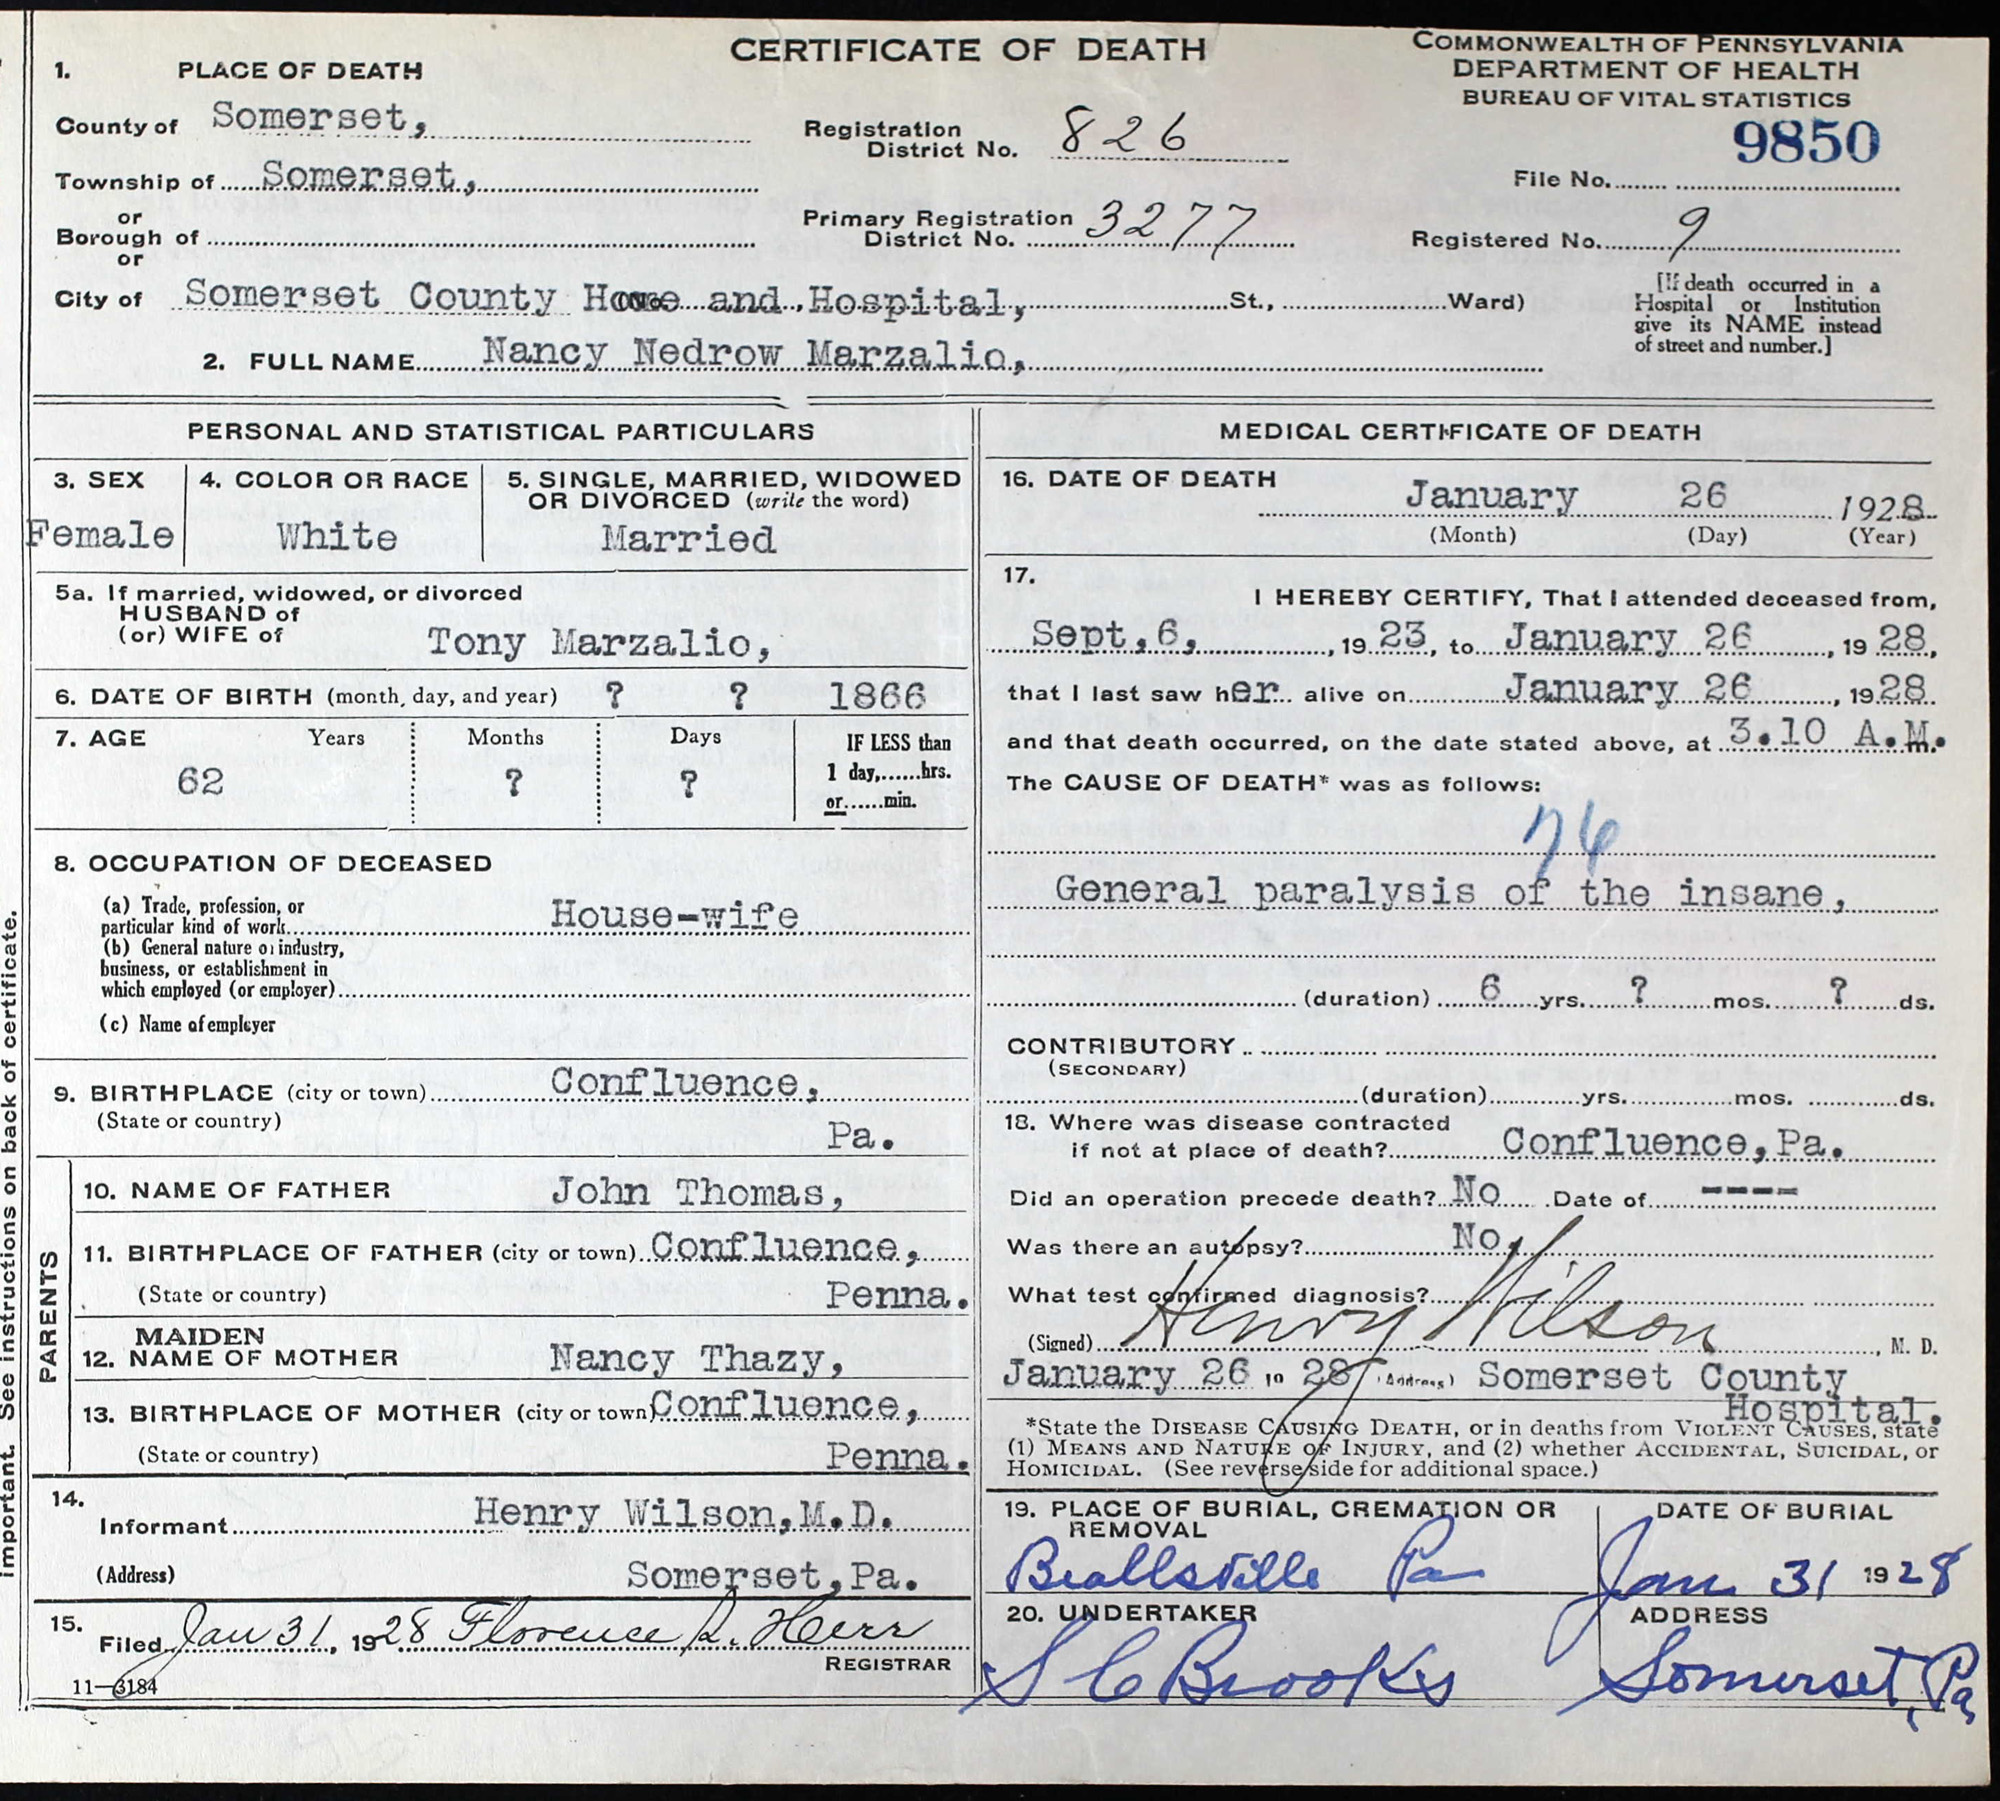 CERTIFICATE OF DEATH
COMMONWEALTH OF PENNSYLVANIA
DEPARTMENT OF HEALTH
BUREAU OF VITAL STATISTICS
1. PLACE OF DEATH
County of Somerset,
Township of Somerset,
or
Borough of
or
City of Somerset County Home and Hospital, St., Ward)
Registration
District No. 826
Primary Registration
District No. 3277
9850
File No.
Registered No. 9
[If death occurred in a
Hospital or Institution
give its NAME instead
of street and number.]
2. FULL NAME Nancy Nedrow Marzalio,
PERSONAL AND STATISTICAL PARTICULARS
3. SEX
Female
4. COLOR OR RACE
White
5. SINGLE, MARRIED, WIDOWED
OR DIVORCED (write the word)
Married
5a. If married, widowed, or divorced
HUSBAND of
(or) WIFE of Tony Marzalio,
6. DATE OF BIRTH (month, day, and year) ? ? 1866
7. AGE Years Months Days IF LESS than
62 ? ? 1 day,......hrs.
or......min.
8. OCCUPATION OF DECEASED
(a) Trade, profession, or
particular kind of work House-wife
(b) General nature of industry,
business, or establishment in
which employed (or employer)
(c) Name of employer
9. BIRTHPLACE (city or town) Confluence,
(State or country) Pa.
PARENTS
10. NAME OF FATHER John Thomas,
11. BIRTHPLACE OF FATHER (city or town) Confluence,
(State or country) Penna.
MAIDEN
12. NAME OF MOTHER Nancy Thazy,
13. BIRTHPLACE OF MOTHER (city or town) Confluence,
(State or country) Penna.
14.
Informant Henry Wilson,M.D.
(Address) Somerset,Pa.
15.
Filed Jan 31, 1928 Florence R. Herr
REGISTRAR
11-3184
MEDICAL CERTIFICATE OF DEATH
16. DATE OF DEATH
January 26 1928
(Month) (Day) (Year)
17.
I HEREBY CERTIFY, That I attended deceased from,
Sept,6, , 19 23, to January 26 , 19 28,
that I last saw her alive on January 26 , 1928.
and that death occurred, on the date stated above, at 3.10 A.M.
The CAUSE OF DEATH* was as follows:
76
General paralysis of the insane,
(duration) 6 yrs. ? mos. ? ds.
CONTRIBUTORY
(SECONDARY)
(duration) yrs. mos. ds.
18. Where was disease contracted
if not at place of death? Confluence,Pa.
Did an operation precede death? No Date of ----
Was there an autopsy? No,
What test confirmed diagnosis?
(Signed) Henry Wilson , M. D.
January 26 19 28 (Address) Somerset County
Hospital.
*State the DISEASE CAUSING DEATH, or in deaths from VIOLENT CAUSES, state
(1) MEANS AND NATURE OF INJURY, and (2) whether ACCIDENTAL, SUICIDAL, or
HOMICIDAL. (See reverse side for additional space.)
19. PLACE OF BURIAL, CREMATION OR
REMOVAL
Beallsville Pa
DATE OF BURIAL
Jan 31 1928
20. UNDERTAKER
S C Brooks
ADDRESS
Somerset, Pa
important. See instructions on back of certificate.